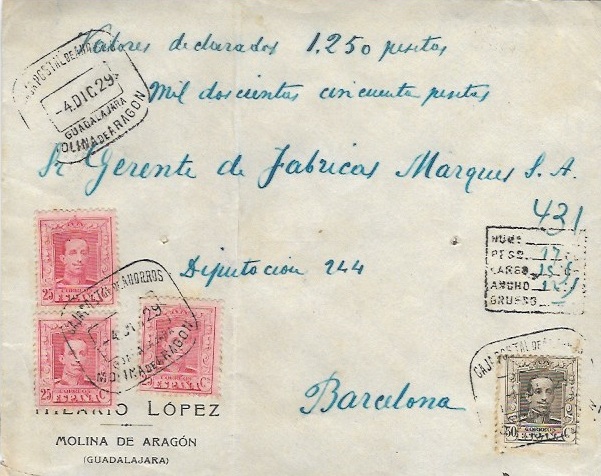 Valores declarados 1.250 pesetas
Mil doscientas cincuenta pesetas
Sr Gerente de Fabricas Marques S.A.
431
Diputación 244
Barcelona
CAJA POSTAL DE AHORROS
-4.DIC.29
GUADALAJARA
MOLINA DE ARAGON
NUM.
PESO 17
LARGO
ANCHO
GRUESO
25 C
ESPAÑA
25 C
ESPAÑA
25 C
ESPAÑA
CAJA POSTAL DE AHORROS
-4.DIC.29
MOLINA DE ARAGON
CAJA POSTAL DE
50 C
ESPAÑA
HILARIO LÓPEZ
MOLINA DE ARAGÓN
(GUADALAJARA)